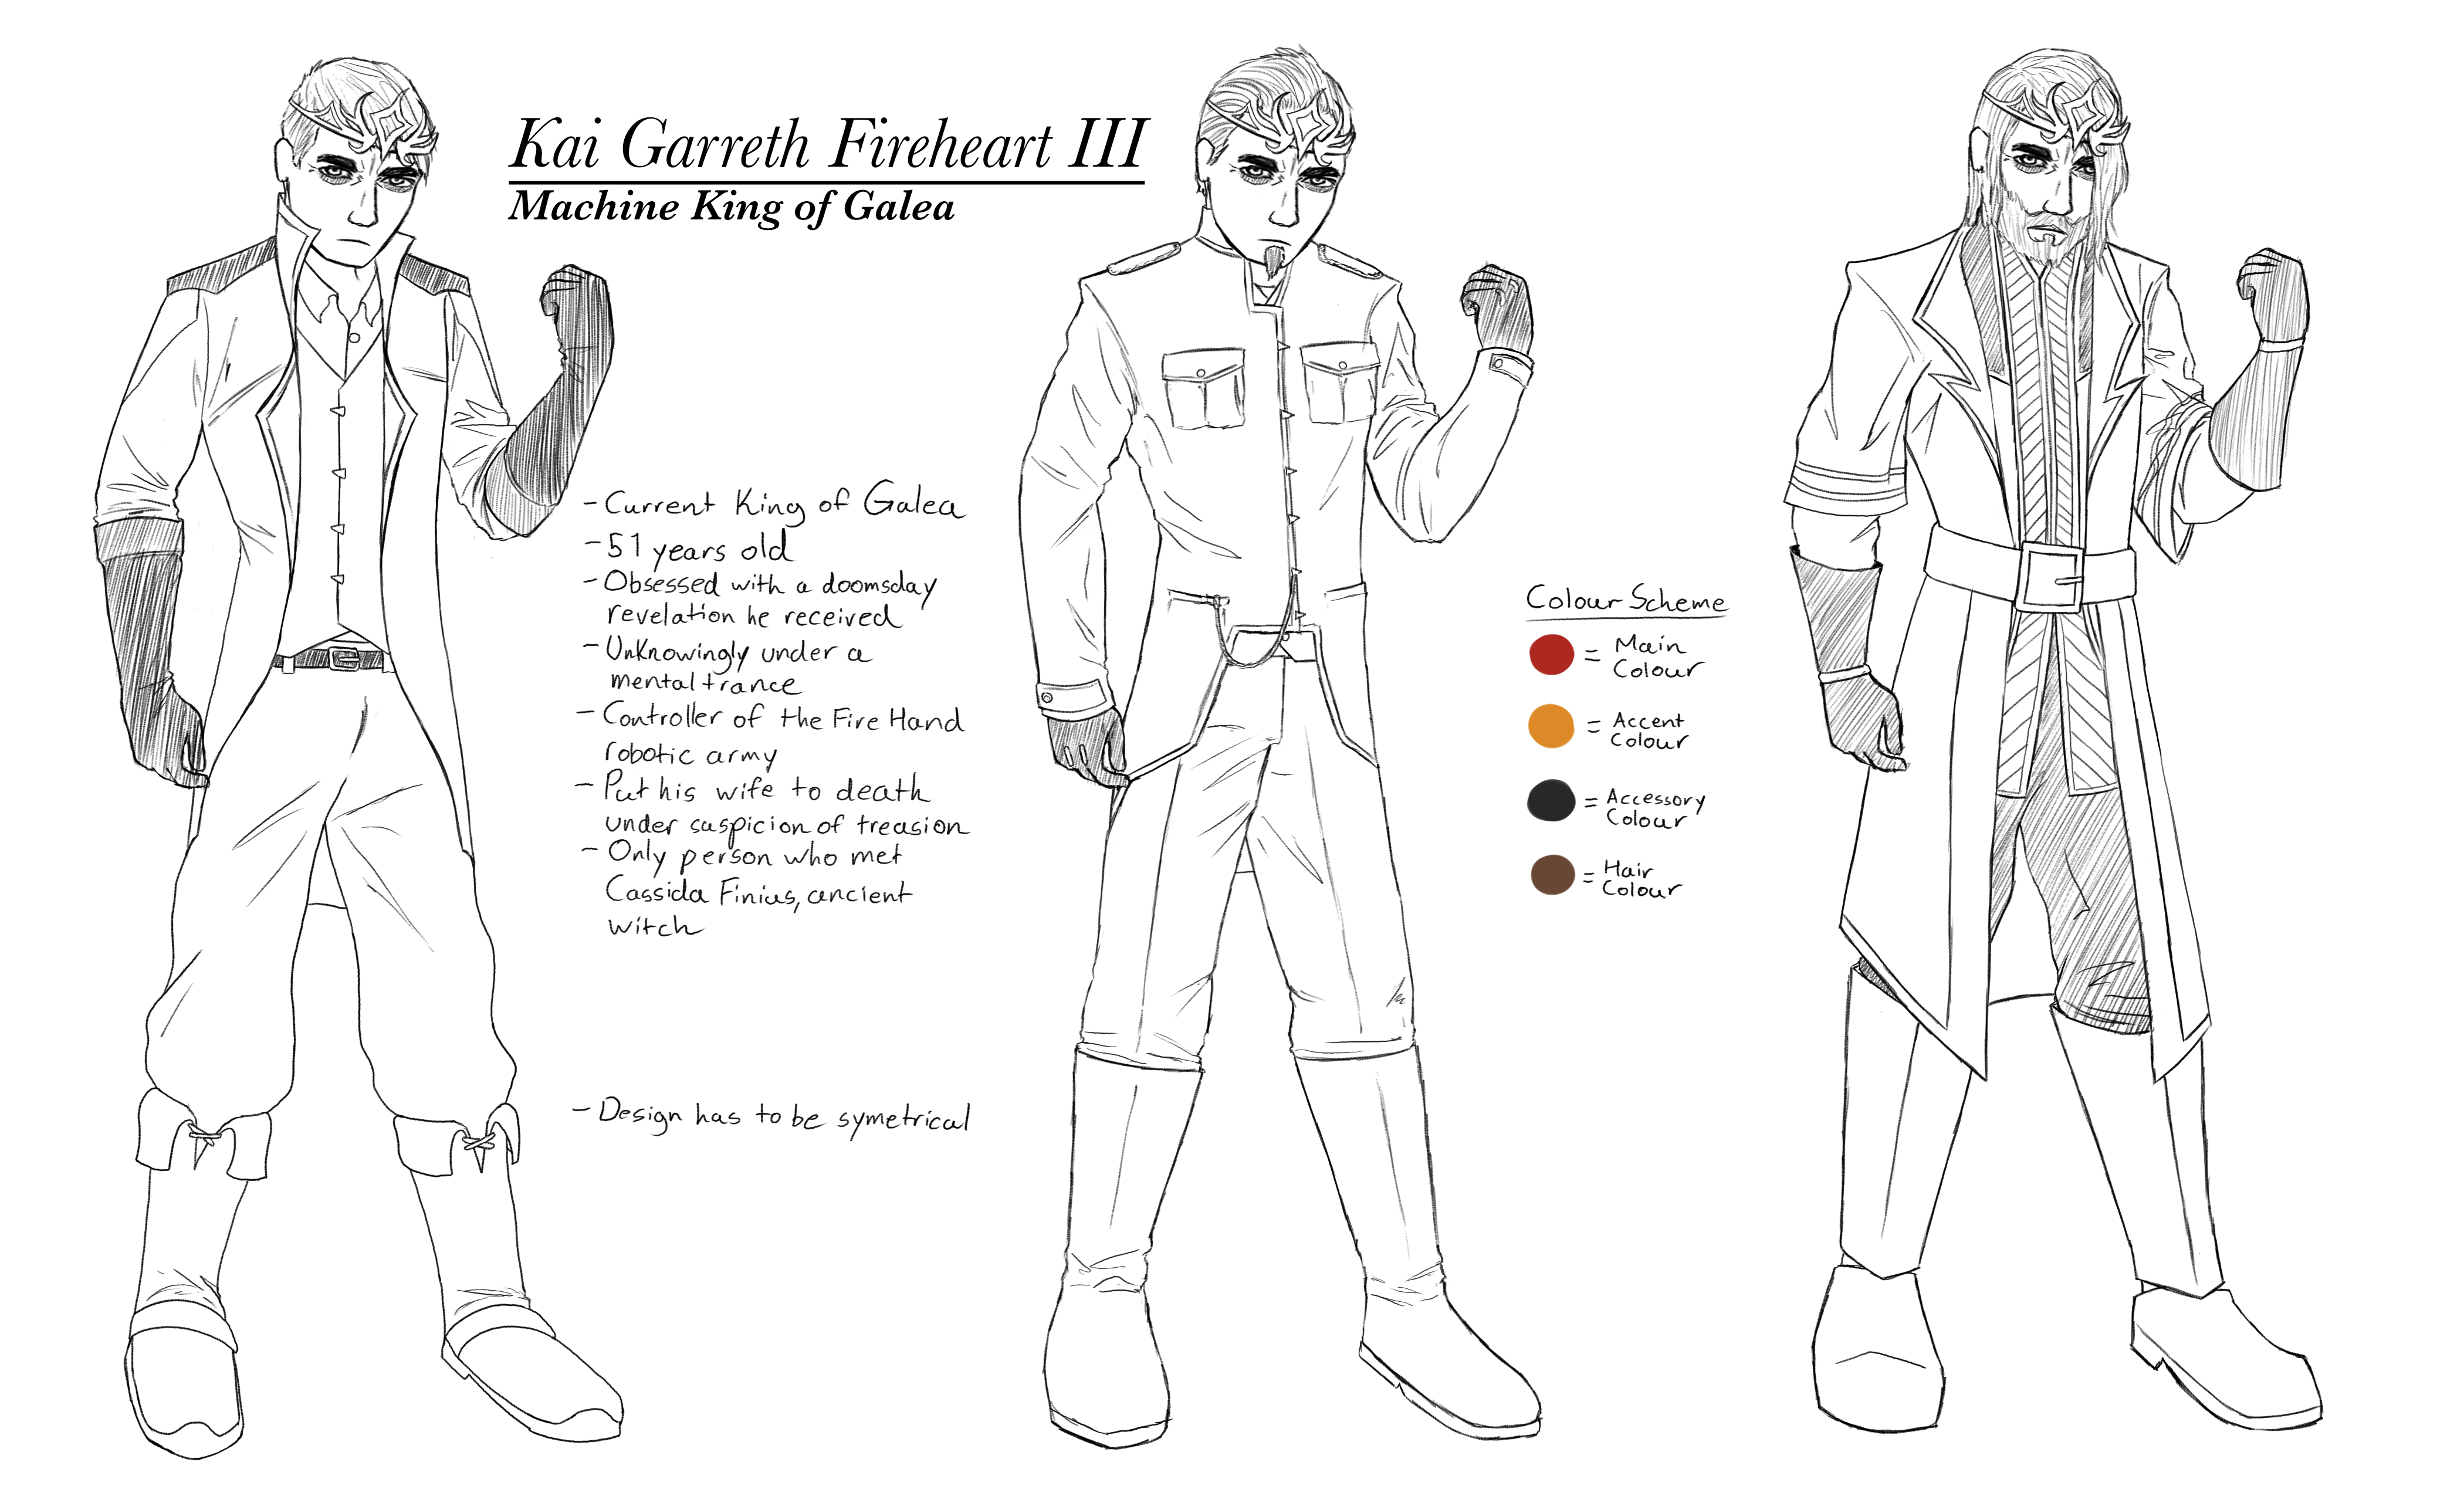 Kai Garreth Fireheart III
Machine King of Galea
- Current King of Galea
- 51 years old
- Obsessed with a doomsday
revelation he received
- Unknowingly under a
mental trance
- Controller of the Fire Hand
robotic army
- Put his wife to death
under suspicion of treasion
- Only person who met
Cassida Finius, ancient
witch
- Design has to be symetrical
Colour Scheme
= Main
Colour
= Accent
Colour
= Accessory
Colour
= Hair
Colour